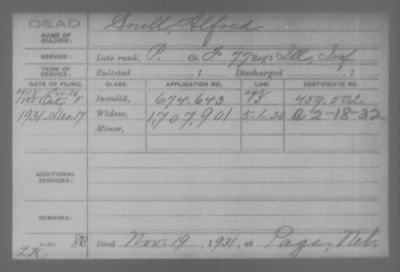 DEAD
NAME OF SOLDIER: Snell, Alfred
SERVICE: Late rank, P. Co. F, 77 Reg't Ill. Inf.
TERM OF SERVICE: Enlisted , 1 Discharged , 1
DATE OF FILING. CLASS. APPLICATION NO. LAW. CERTIFICATE NO.
Oct. 5 Invalid, 674.643 459.502
1931 Dec. 17 Widow, 1707,901 5-1-20 A 2-18-32
Minor,
ADDITIONAL SERVICES:
REMARKS:
Died Nov. 19, 1931, at Page, Neb.